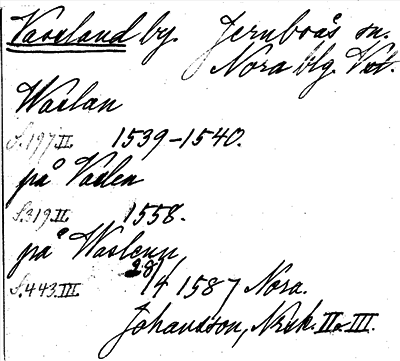 Vasland by. Jernboås sn.
Nora blg. Vstl.
Waslan
s.197.II. 1539–1540.
på Vaslen
s.319.II. 1558.
på Waslenn
s.443.III. 28/4 1587 Nora.
Johansson, Nrik. II o. III.